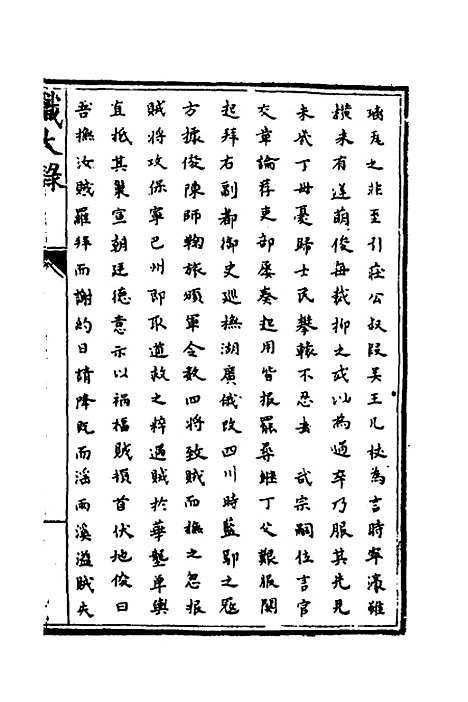 璃瓦之非至引莊公叔段吴王几杖為言時寧濠雖
横未有逆萌俊每裁抑之或以為過卒乃服其先見
未幾丁母憂歸士民攀轅不忍去 武宗嗣位言官
交章論荐吏部屡奏起用皆报罷尋继丁父艱服闋
起拜右副都御史巡撫湖廣俄改四川時藍鄢之寇
方據俊陳師鞠旅頒軍令数四将致賊而撫之忽报
賊将攻保寧巳州即取道救之猝遇賊於華壟单輿
直抵其巢宣朝廷德意示以禍福賊損首伏地俊曰
吾撫汝賊羅拜而謝約日請降既而滛雨溪溢賊失
識大錄